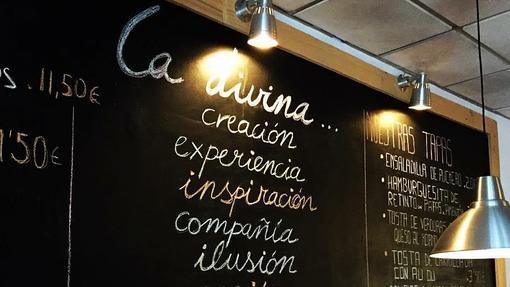 11,50€
1'50€
La divina...
creación
experiencia
inspiración
compañía
ilusión
NUESTRAS TAPAS
• ENSALADILLA DE PUCHERO
• HAMBURGUESITA DE
RETINTO
• TOSTA DE VERDURAS
QUESO AL
• TOSTA DE
CON ALI